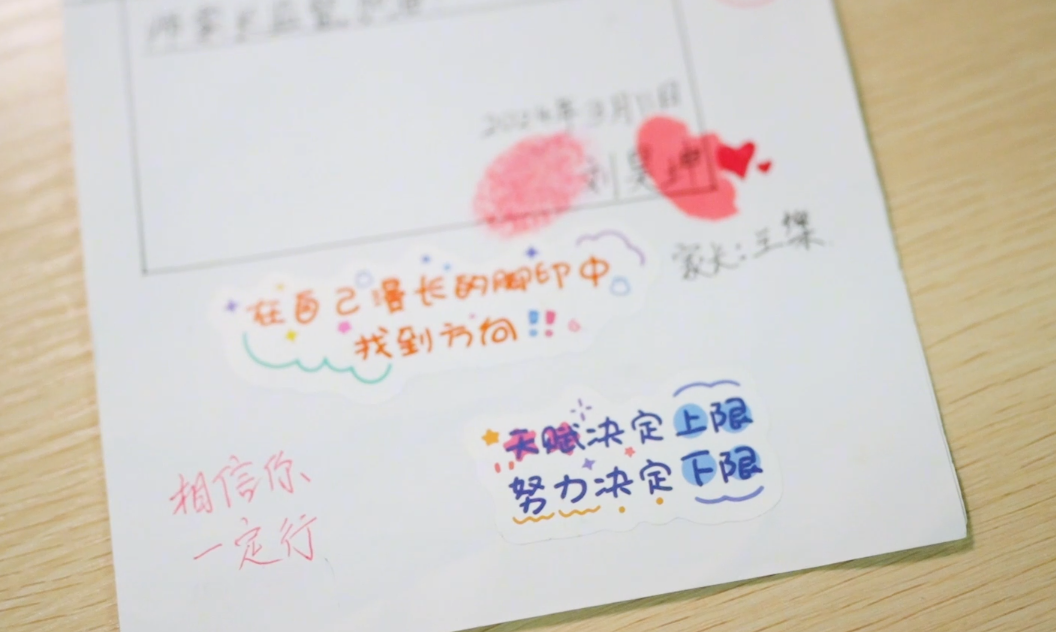 2024年3月11日
刘昊坤
家长:王杰
在自己漫长的脚印中
找到方向!!
天赋决定上限
努力决定下限
相信你
一定行